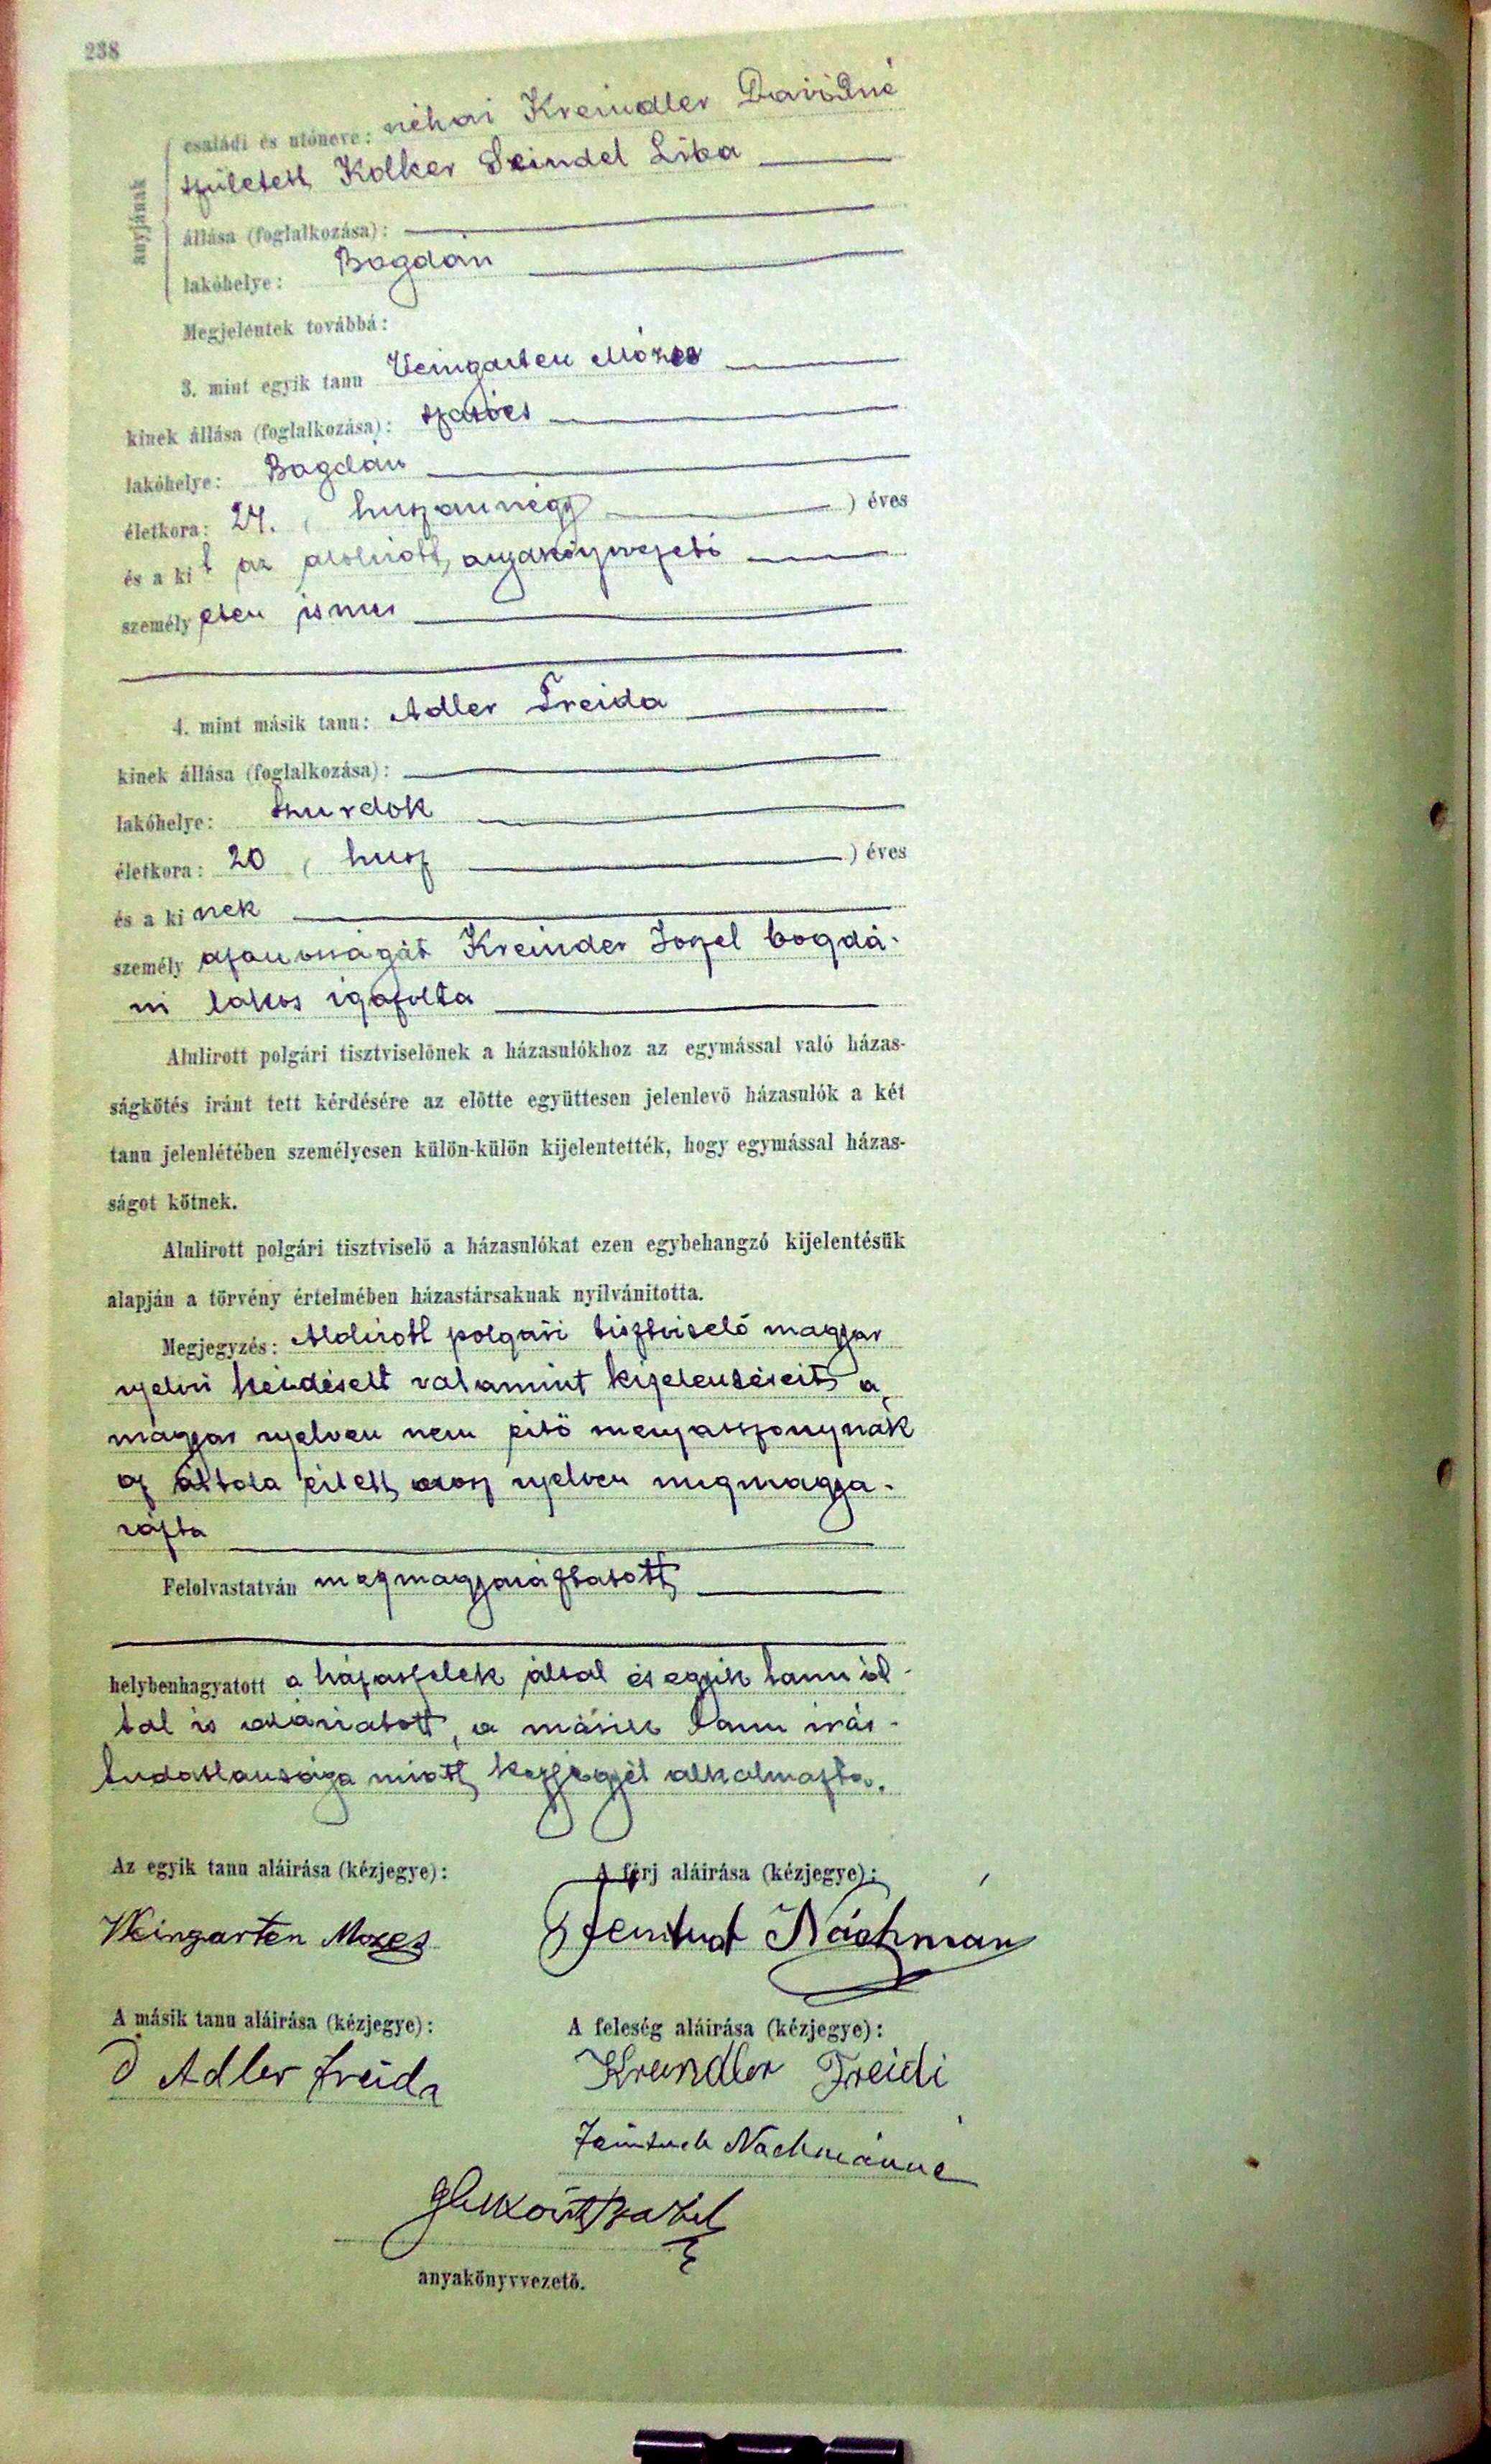 238
anyjának
családi és utóneve: néhai Kreindler Davidné
született Kolker Scindel Liba
állása (foglalkozása):
lakóhelye: Bogdán
Megjelentek továbbá:
3. mint egyik tanu Veingarten Mózes
kinek állása (foglalkozása): szatócs
lakóhelye: Bogdán
életkora: 24. ( huszannégy ) éves
és a kit az alolirott anyakönyvezető
személyesen ismer
4. mint másik tanu: Adler Freida
kinek állása (foglalkozása):
lakóhelye: Szurdok
életkora: 20 ( husz ) éves
és a kinek
személyazonosságát Kreinder Joszel bogdá-
ni lakos igazolta
Alulirott polgári tisztviselőnek a házasulókhoz az egymással való házas-
ságkötés iránt tett kérdésére az előtte együttesen jelenlevő házasulók a két
tanu jelenlétében személyesen külön-külön kijelentették, hogy egymással házas-
ságot kötnek.
Alulirott polgári tisztviselő a házasulókat ezen egybehangzó kijelentésük
alapján a törvény értelmében házastársaknak nyilvánitotta.
Megjegyzés: Alolirott polgári tisztviselő magyar
nyelvü kérdéseit valamint kijelentéseit a
magyar nyelven nem értő menyasszonynak
az általa értett orosz nyelven megmagya-
rázta
Felolvastatván megmagyaráztatott
helybenhagyatott a házasfelek által és egyik tanu ál-
tal is aláiratott, a másik tanu irás-
tudatlansága miatt kézjegyét alkalmazta.
Az egyik tanu aláirása (kézjegye):
A férj aláirása (kézjegye):
Weingarten Mozes
Náchmán
A másik tanu aláirása (kézjegye):
A feleség aláirása (kézjegye):
Adler freida
Kreindler Freidi
Nachmánné
anyakönyvvezető.